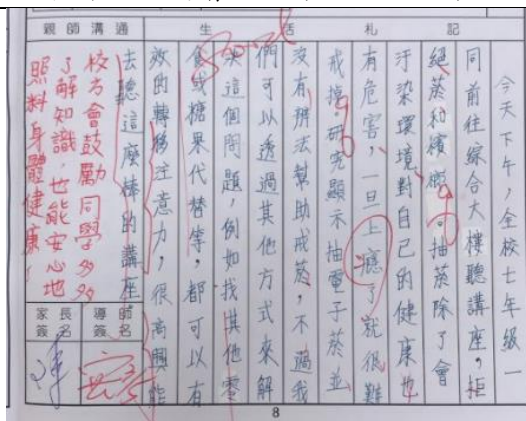 生活札記
今天下午，全校七年級一
同前往綜合大樓聽講座，拒
絕菸和檳榔。抽菸除了會
汙染環境對自己的健康也
有危害，一旦上癮了就很難
戒掉。研究顯示抽電子菸並
沒有辦法幫助戒菸，不過我
們可以透過其他方式來解
決這個問題，例如找其他零
食或糖果代替等，都可以有
效的轉移注意力，很高興能
去聽這麼棒的講座。
親師溝通
校方會鼓勵同學多多
了解知識，也能安心地
照料身體健康！
導師簽名
家長簽名
8